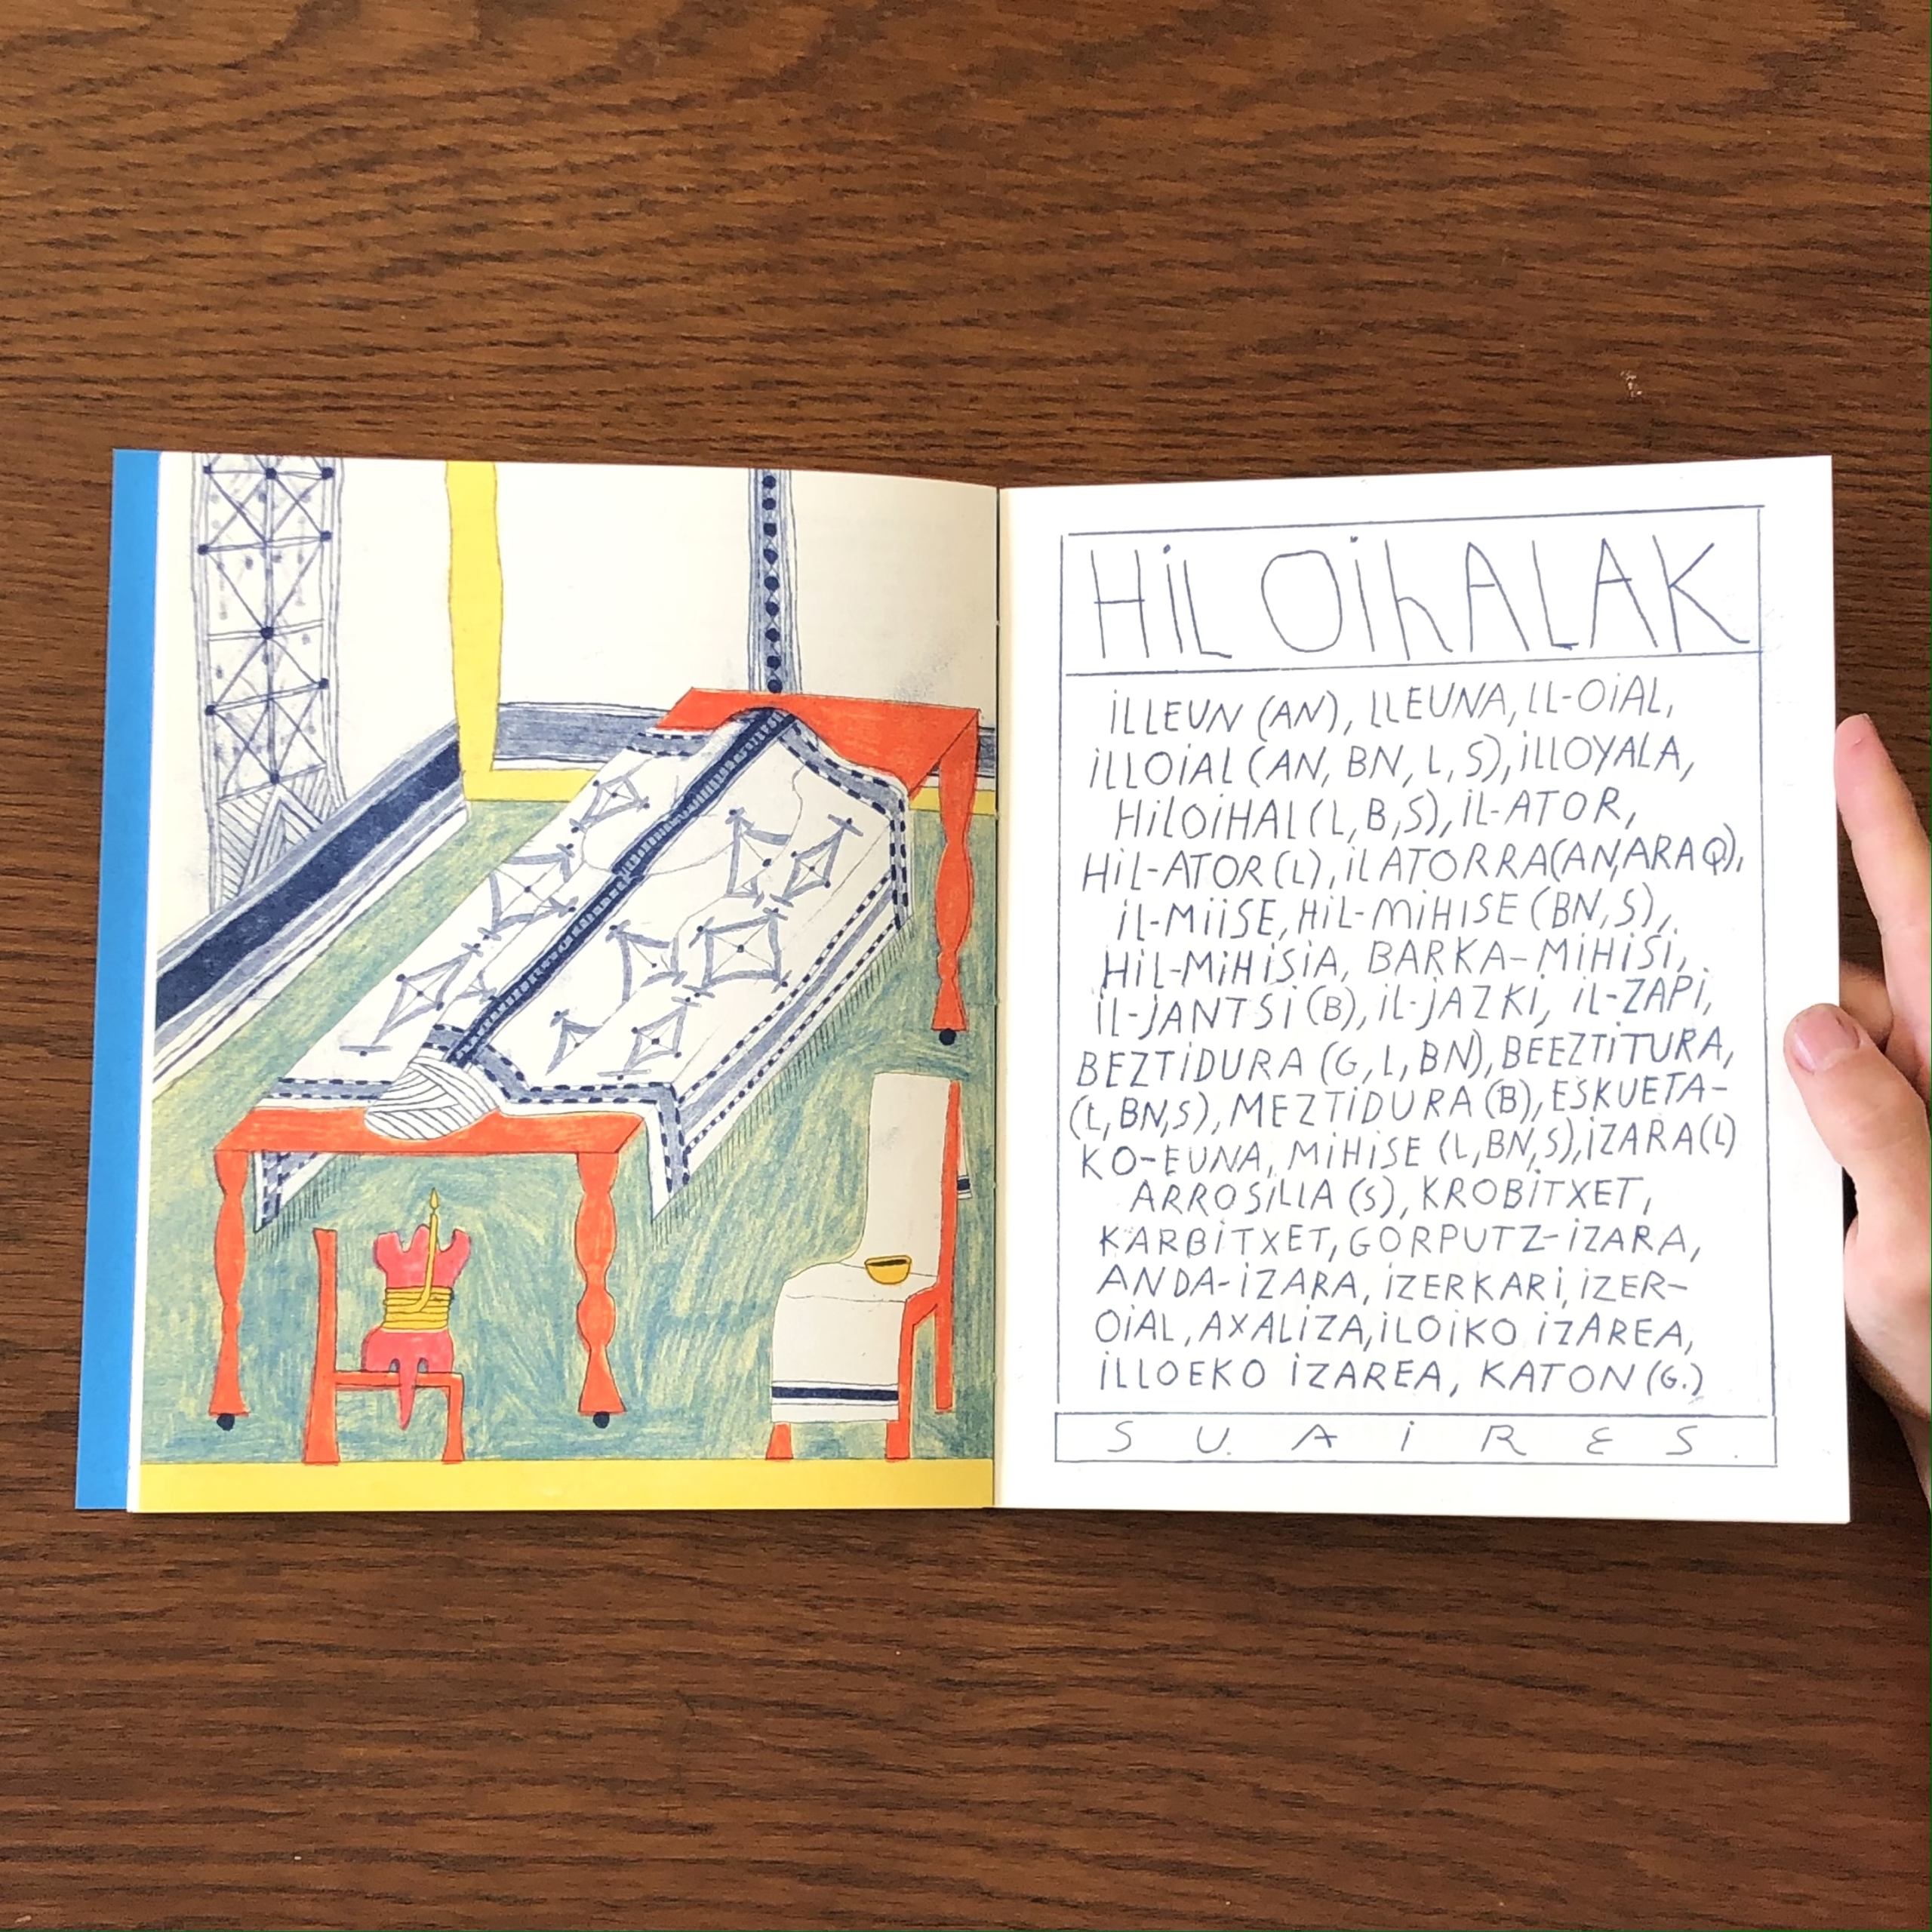 HiL OihALAK
iLLEUN (AN), LLEUNA, LL-OiAL,
iLLOiAL (AN, BN, L, S), iLLOYALA,
HiLOiHAL (L, B, S), iL-ATOR,
HiL-ATOR (L), iL ATORRA (AN, ARAQ),
iL-MiiSE, HiL-MiHISE (BN, S),
HiL-MiHiSiA, BARKA-MiHiSi,
iL-JANTSi (B), iL-JAZKi, iL-ZAPi,
BEZTiDURA (G, L, BN), BEEZTiTURA,
(L, BN, S), MEZTiDURA (B), ESKUETA-
KO-EUNA, MiHiSE (L, BN, S), iZARA (L)
ARROSiLLA (S), KROBiTXET,
KARBiTXET, GORPUTZ-iZARA,
ANDA-iZARA, iZERKARi, iZER-
OiAL, AXALiZA, iLOiKO iZAREA,
iLLOEKO iZAREA, KATON (G.)
SUAiRES.